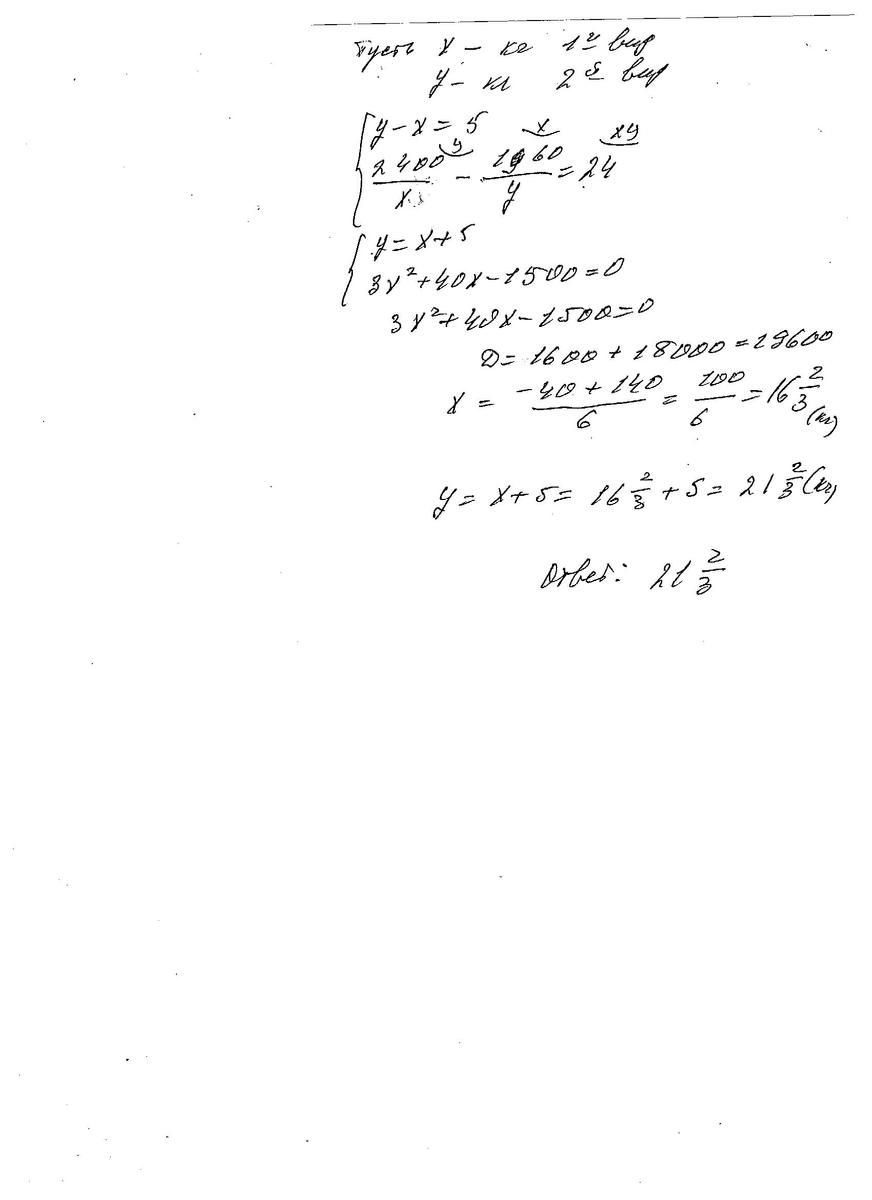 Пусть x – кг 1й вид
y – кг 2й вид
y – x = 5
2400/x – 1960/y = 24
y x xy
y = x + 5
3x² + 40x – 1500 = 0
3x² + 40x – 1500 = 0
D = 1600 + 18000 = 19600
x = (–40 + 140)/6 = 100/6 = 16 2/3 (кг)
y = x + 5 = 16 2/3 + 5 = 21 2/3 (кг)
Ответ: 21 2/3